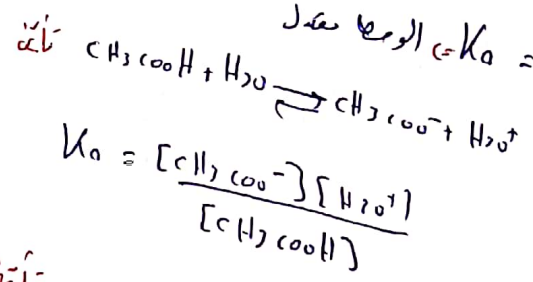 الوسط معتدل <= Ka =
CH3COOH + H2O ⇌ CH3COO⁻ + H3O⁺
Ka = [CH3COO⁻][H3O⁺] / [CH3COOH]